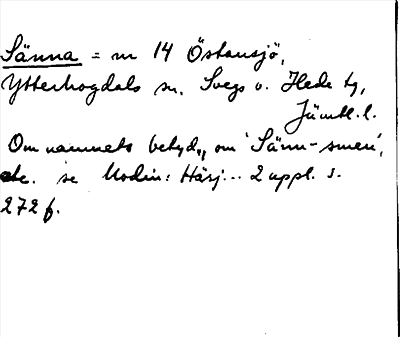 Sänna = n 14 Östansjö,
Ytterhogdals sn. Svegs o. Hede tg,
Jämtl. l.
Om namnets betyd., om 'Sänn-smen',
etc. se Modin: Härj... 2 uppl. s.
272 f.